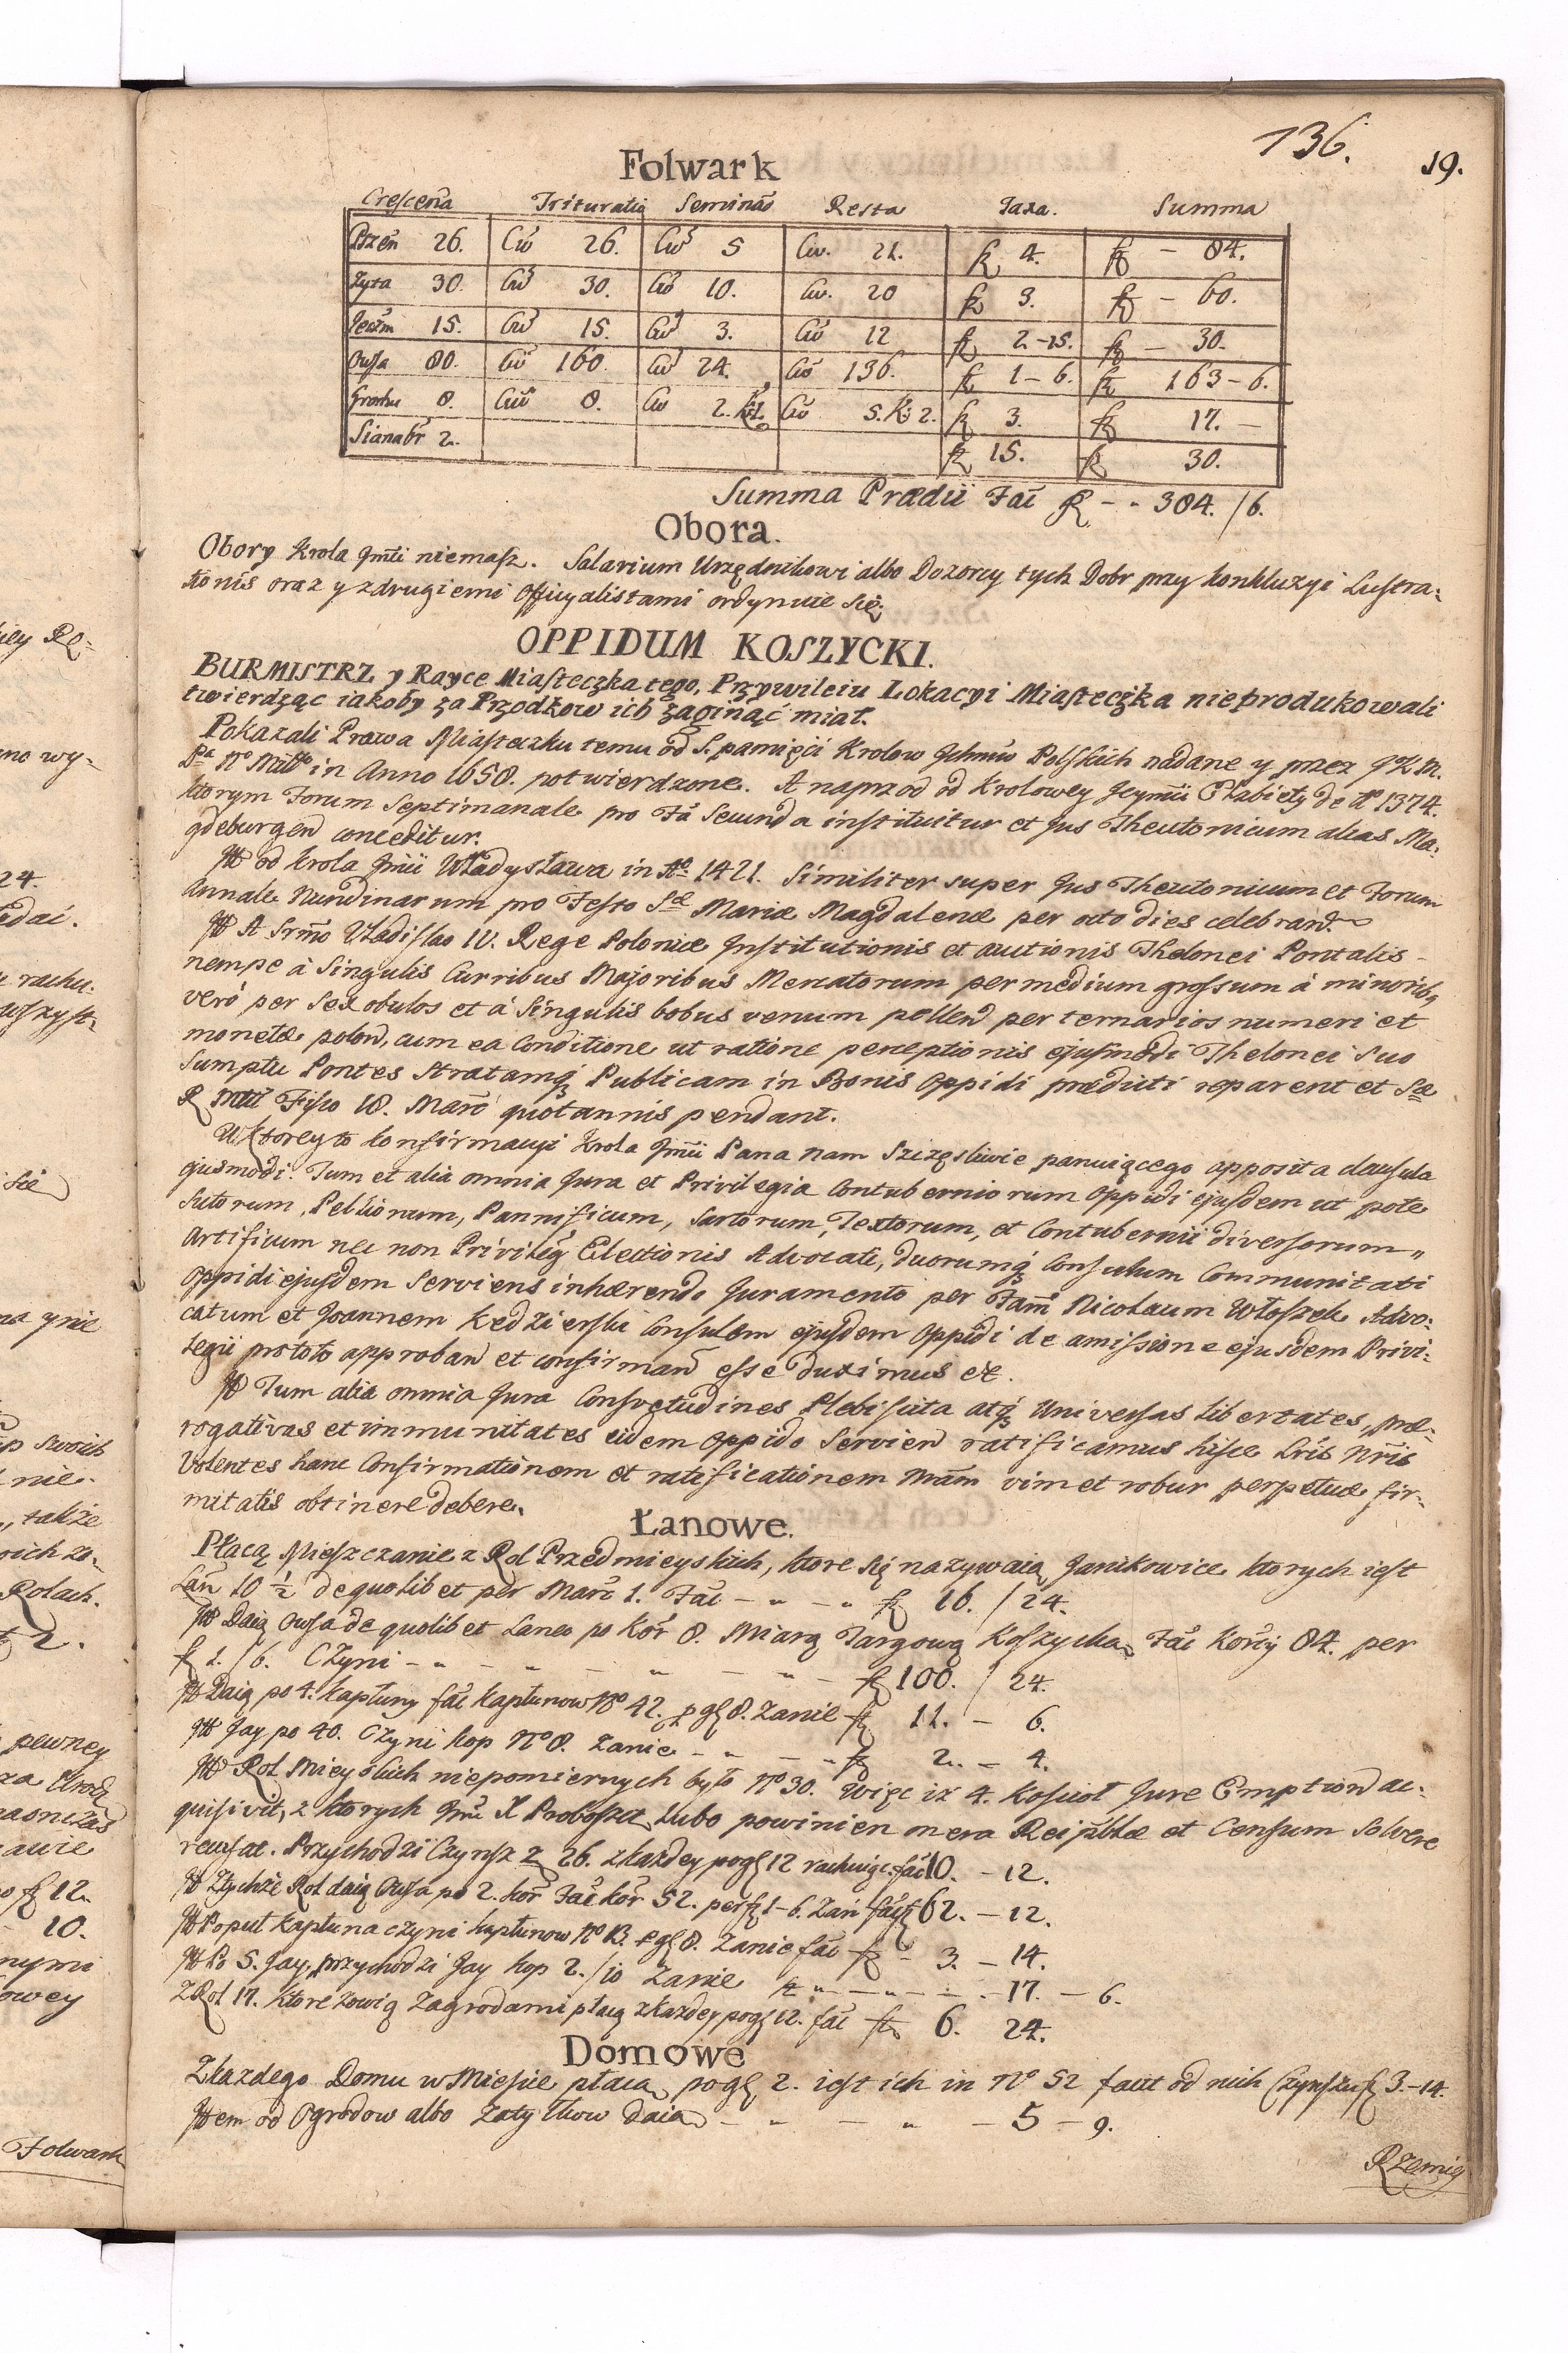 136.
19.
Folwark
Crescena Trituratio Semina Resta Taxa. Summa
Pszen 26. Cw 26. Cw 5 Cw. 21. fl 4. fl – 84.
Zyta 30. Cw 30. Cw 10. Cw. 20 fl 3. fl – 60.
Jeczm 15. Cw 15. Cw 3. Cw 12 fl 2–15. fl – 30.
Owsa 80. Cw 160. Cw 24. Cw 136. fl 1–6. fl 163–6.
Grochu 8. Cw 8. Cw 2. K:2. Cw 5. K: 2. fl 3. fl 17. –
Siana br 2. fl 15. fl 30.
Summa Prædii Fac̄ fl – „ 384. /6.
Obora.
Obory Krola Jmći niemasz. Salarium Urzędnikowi albo Dozorcy tych Dobr przy konkluzyi Lustra:
tionis oraz y z drugiemi Officyalistami ordynuie się.
OPPIDUM KOSZYCKI.
BURMISTRZ y Rayce Miasteczka tego, Przywileiu Lokacyi Miasteczka nieprodukowali
twierdząc iakoby za Przodkow ich zaginąć miał.
Pokazali Prawa Miasteczku temu od S. pamięći Krolow Jchmćiow Polskich nadane y przez JKM.
Pa No Miłło in Anno 1658. potwierdzone. A naprzod od Krolowey Jeymći Elzbiety de Ao 1374.
ktorym Forum Septimanale pro Fā Secunda instituitur et Jus Theutonicum alias Ma:
gdeburgen conceditur.
Itt od Krola Jmći Władysława in Ao 1421. Similiter super Jus Theutonicum et Forum
Annale Nundinarum pro Festo Sæ Mariæ Magdalenæ per octo dies celebrand.
Itt A Srmo Vladislao IV. Rege Poloniæ Institutionis et auctionis Thelonei Pontalis –
nempe à Singulis Curribus Majoribus Mercatorum per medium grossum à minoribq
veró per Sex obulos et à Singulis bobus venum pellend per ternarios numeri et
monetæ polon, cum ea Conditione ut ratione perceptionis ejusmodi Thelonei Suo
Sumptu Pontes Stratamq Publicam in Bonis Oppidi prædicti reparent et Sæ
R Mtti Fisco 18. Marc quotannis pendant.
W ktoreyto konfirmacyi Krola Jmći Pana Nam Szczęsliwie panuiącego apposita clausula
ejusmodi. Tum et alia omnia Jura et Privilegia Contuberniorum Oppidi ejusdem ut pote
Sutorum, Pellionum, Pannificum, Sartorum, Textorum, et Contubernii diversorum „
Artificum nec non Privileg Electionis Advocati, duorumq Consulum Communitati
Oppidi ejusdem Serviens inhærendo Juramento per Fam Nicolaum Włoszek Advo:
catum et Joannem Kedzierski Consulem ejusdem Oppidi de amissione ejusdem Privi:
legii prototo approban et confirman esse duximus etc.
Itt Tum alia omnia Jura Consvetudines Plebiscita atq Universas libertates, præ:
rogativas et immunitates eidem Oppido Servien ratificamus hisce Lris Nris
Volentes hanc Confirmationem et ratificationem Nram vim et robur perpetuæ fir:
mitatis obtinere debere.
Łanowe.
Płacą Miesz czanie z Rol Przedmieyskich, ktore się nazywaią Janikowice ktorych iest
Łan 10 ½ de quolibet per Marc 1. Fac̄ – „ – „ fl 16. / 24.
Itt Daią Owsa de quolibet Laneo po Kor 8. Miarą Targową Koszycką Fac̄ Korcy 84. per
fl 1. /6. Czyni – „ – „ – „ – „ – fl 100. / 24.
Itt Daią po 4. kapłuny fac̄ kapłunow No 42. p gr 8. Zanie fl 11. – 6.
Itt Jay po 40. Czyni kop No 8. Zanie – „ – „ fl 2. – 4.
Itt Rol Mieyskich niepomiernych było No 30. Więc iż 4. Kosciol Jure Emption ac:
quisivit, z ktorych Jmć X Proboszcz Lubo powinien onera Reipblcæ et Censum Solvere
recusat. Przychodzi Czynsz z 26. z kazdey po gr 12 rachuiąc. fac̄ 10. – 12.
Itt Ztychże Rol daią Owsa po 2. Kor Fac̄ kor 52. per fl 1–6. Zań fac̄ fl 62. – 12.
Itt Po puł kapłuna czyni kapłunow No 13. p gr 8. Zanie fac̄ fl – 3. – 14.
Itt Po 5. Jay, przychodzi Jay kop 2. /10 Zanie fl „ – „ – 17. – 6.
Z Rol 17. Ktore zowią Zagrodami płacą z kazdey po gr 12. fac̄ fl 6. 24.
Domowe
Zkazdego Domu w Miescie płacą po gr 2. iest ich in No 52 facit od nich Czynszu fl 3.–14.
Item od Ogrodow albo Zatyłkow Daią – „ – „ – 5 – 9.
Rzemię